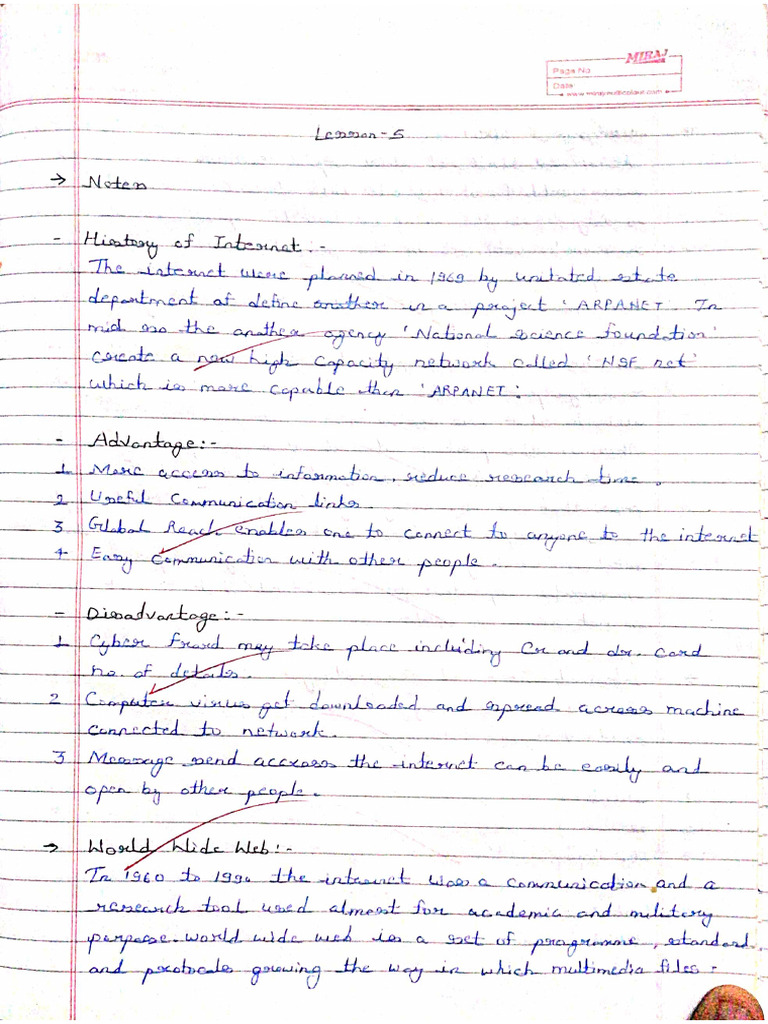 MIRAJ
Page No
Date
www.mirajmulticolour.com
Lesson-5
→ Notes
- History of Internet:-
The internet were planned in 1969 by unitated state
department of define another in a project 'ARPANET. In
mid 80 the another agency 'National science foundation'
create a new high capacity network called 'NSF net'
which is more capable then 'ARPANET:
- Advantage:-
1 More access to information, reduce research time.
2 Useful Communication links.
3 Global Reach enables one to connect to anyone to the internet
4 Easy Communication with other people.
- Disadvantage:-
1 Cyber fraud may take place including Cr and dr. Card
no. of details.
2 Computer virus get downloaded and spread across machine
connected to network.
3 Message send accross the internet can be easily and
open by other people.
→ World Wide Web:-
In 1960 to 1990 the internet was a communication and a
research tool used almost for academia and military
purpose. world wide web is a set of programme, standard
and protocols growing the way in which multimedia files: